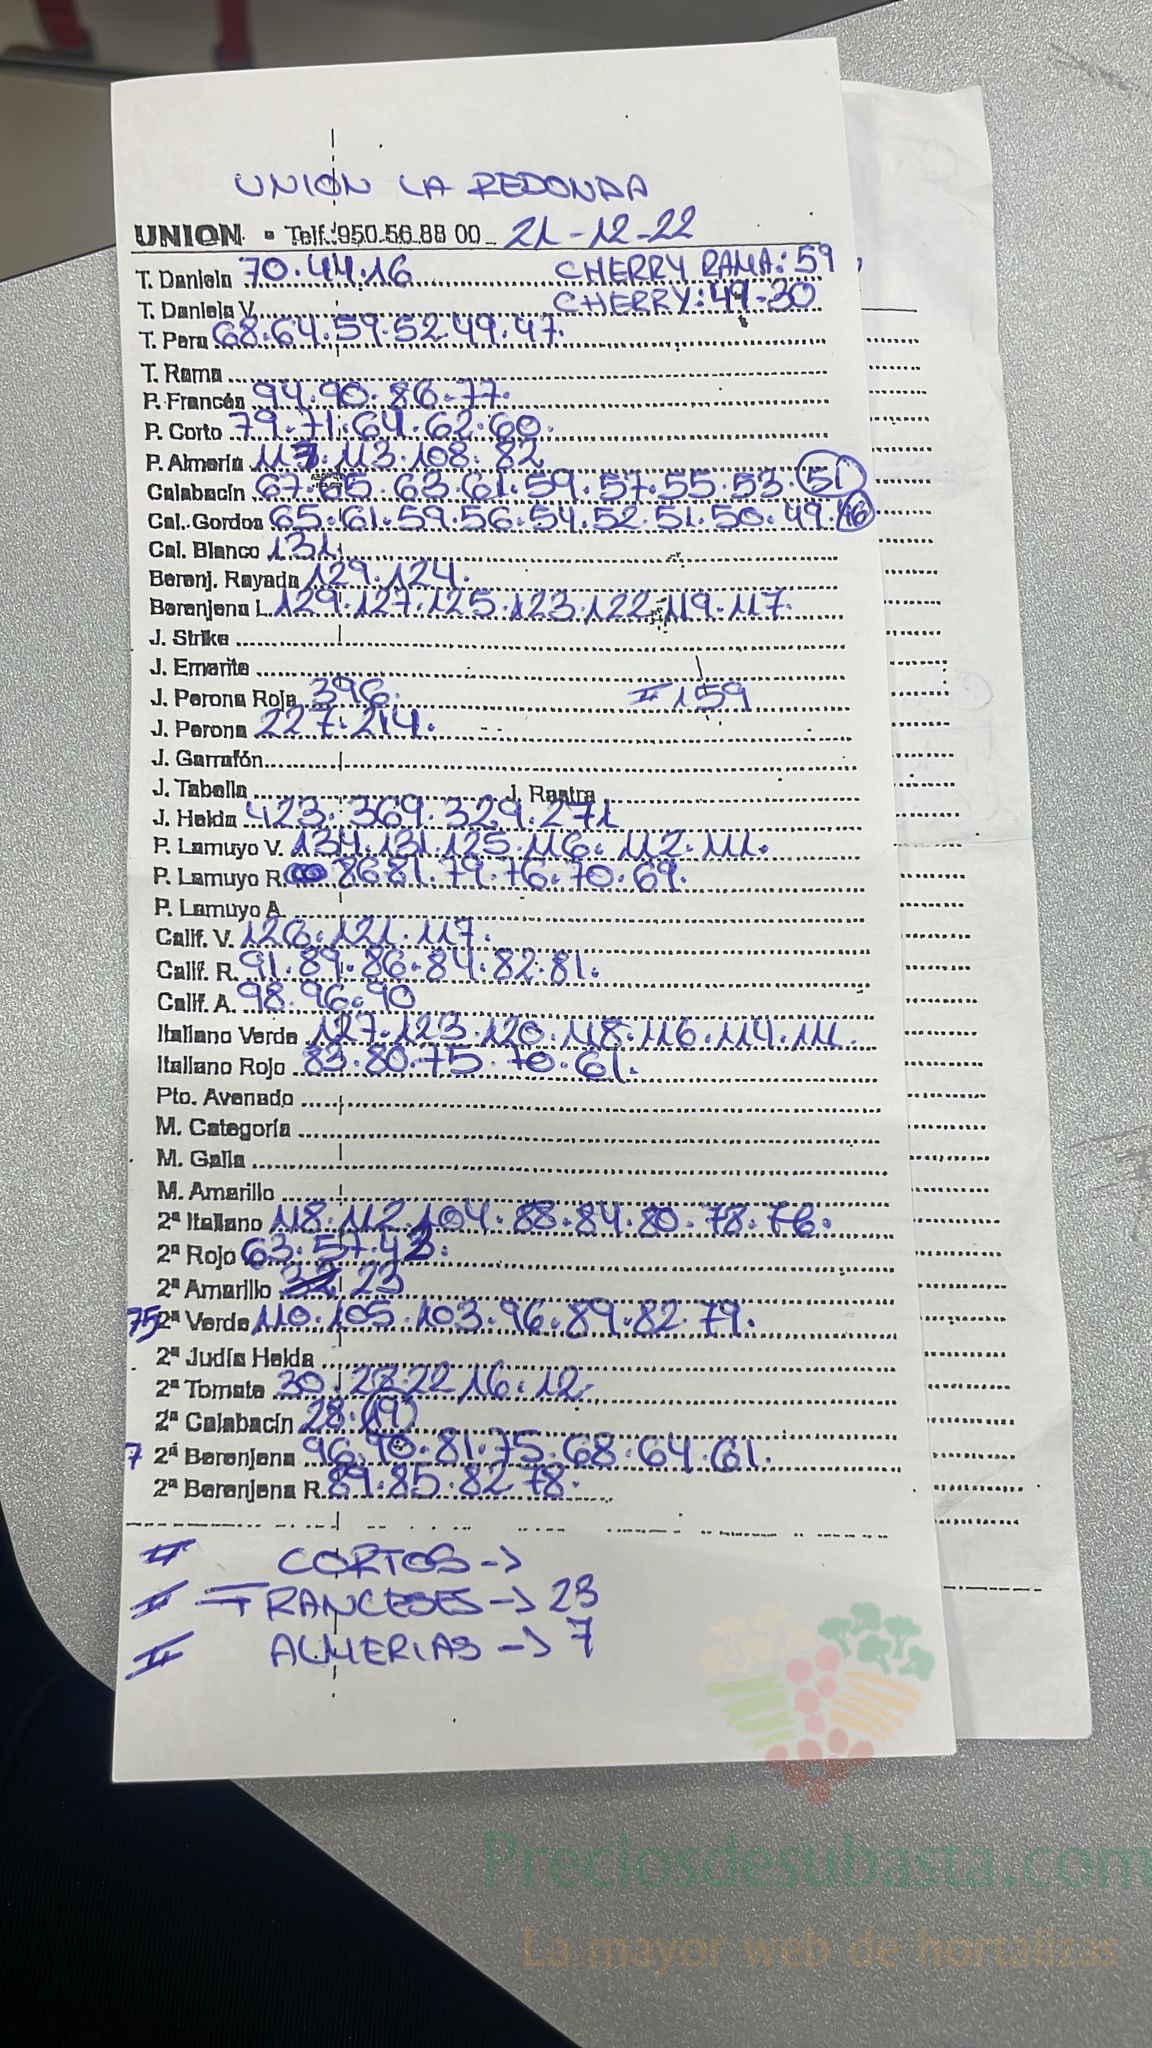 UNION LA REDONDA
UNION • Telf.: 950.56.88 00 21-12-22
T. Daniela 70.44.16 CHERRY RAMA: 59
T. Daniela V. CHERRY: 49-30
T. Pera 68.64.59.52.49.47.
T. Rama
P. Francés 94.90.86.77.
P. Corto 79.71.64.62.60.
P. Almería 117.113.108.82
Calabacín 67.65.63.61.59.57.55.53.51
Cal. Gordos 65.61.59.56.54.52.51.50.49.46
Cal. Blanco 131.
Berenj. Rayada 129.124.
Berenjena L. 129.127.125.123.122.119.117.
J. Strike
J. Emerite
J. Perona Roja 396. II 159
J. Perona 227.214.
J. Garrafón
J. Tabella J. Rastra
J. Helda 423.369.329.271
P. Lamuyo V. 134.131.125.116.112.111.
P. Lamuyo R. 86 81.79.76.70.69.
P. Lamuyo A.
Calif. V. 126.121.117.
Calif. R. 91.89.86.84.82.81.
Calif. A. 98.96.90
Italiano Verde 127.123.120.118.116.114.111.
Italiano Rojo 83.80.75.70.61.
Pto. Avenado
M. Categoría
M. Galia
M. Amarillo
2ª Italiano 118.112.104.88.84.80.78.76.
2ª Rojo 63.57.43.
2ª Amarillo 32 23
75 2ª Verde 110.105.103.96.89.82.79.
2ª Judía Helda
2ª Tomate 30.28.22.16.12.
2ª Calabacín 28.(19)
7 2ª Berenjena 96.90.81.75.68.64.61.
2ª Berenjena R. 89.85.82.78.
II CORTOS ->
II FRANCESES -> 23
II ALMERIAS -> 7
Preciosdesubasta.com
La mayor web de hortalizas